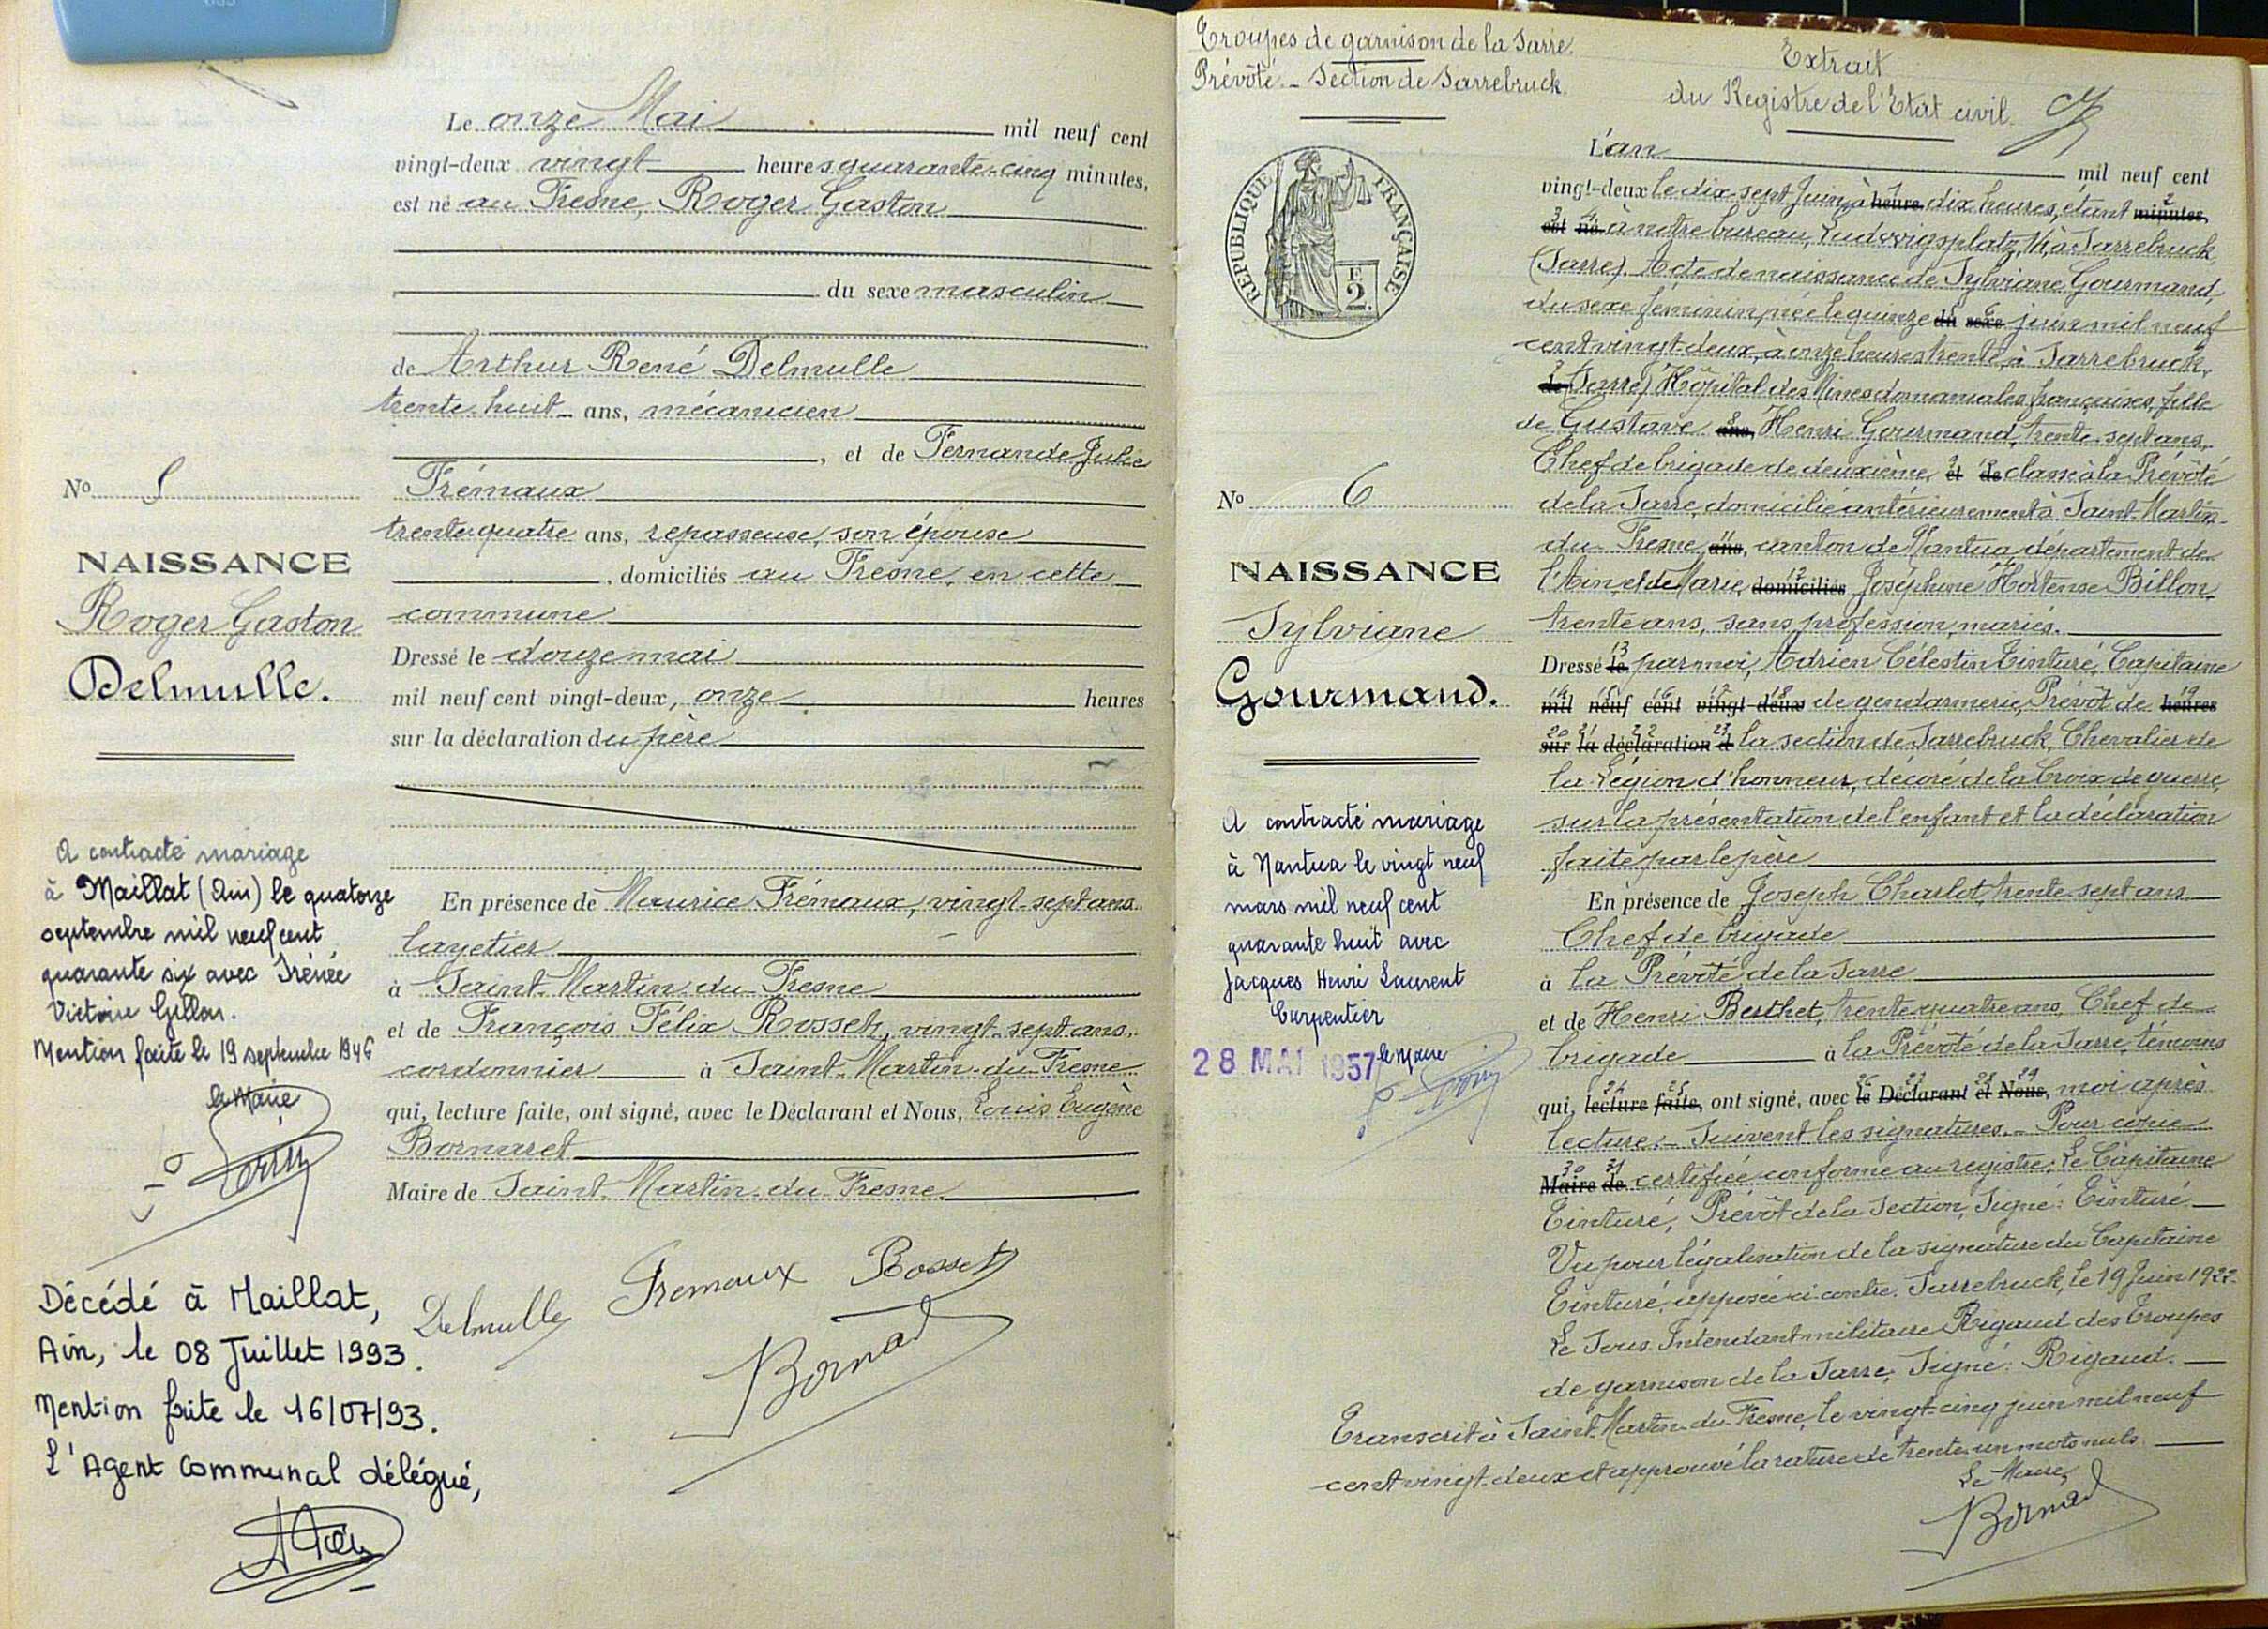 Le onze Mai mil neuf cent
vingt-deux vingt heures quarante-cinq minutes,
est né au Fresne, Roger Gaston
du sexe masculin
de Arthur René Delmulle
trente huit ans, mécanicien
, et de Fernande Julie
Frémaux
trente-quatre ans, repasseuse, son épouse
, domiciliés au Fresne, en cette
commune
Dressé le douze mai
mil neuf cent vingt-deux, onze heures
sur la déclaration du père
En présence de Maurice Frémaux, vingt-sept ans
layetier
à Saint-Martin-du-Fresne
et de François Félix Rosset, vingt-sept ans,
cordonnier à Saint-Martin-du-Fresne
qui, lecture faite, ont signé, avec le Déclarant et Nous, Louis Eugène
Bornaret
Maire de Saint-Martin-du-Fresne
Delmulle Fremaux Rosset
No 5
NAISSANCE
Roger Gaston
Delmulle.
A contracté mariage
à Maillat (Ain) le quatorze
septembre mil neuf cent
quarante six avec Irénée
Victoire Gillon.
Mention faite le 19 septembre 1946
le Maire
Décédé à Maillat,
Ain, le 08 Juillet 1993.
Mention faite le 16/07/93.
L'Agent Communal délégué,
Troupes de garnison de la Sarre.
Prévôté - Section de Sarrebruck.
Extrait
du Registre de l'Etat civil.
RÉPUBLIQUE FRANÇAISE
F
2.
L'an mil neuf cent
vingt-deux le dix-sept Juin, à heure dix heures, étant minutes, 2
3 4 est né à notre bureau, Ludwigsplatz, 14, à Sarrebruck
(Sarre). Acte de naissance de Sylviane Gourmand,
du sexe féminin, née le quinze du sexe juin mil neuf
cent vingt-deux, à onze heures trente, à Sarrebruck,
de (Sarre) Hôpital des Mines domaniales françaises, fille
de Gustave ans, Henri Gourmand, trente-sept ans,
Chef de brigade de deuxième et de classe à la Prévôté
de la Sarre, domicilié antérieurement à Saint-Martin-
du-Fresne, ans, canton de Nantua, département de
l'Ain, et de Marie, domiciliés Joséphine Hortense Billon,
trente ans, sans profession, mariés.
Dressé le par moi, Adrien Célestin Teinturé, Capitaine
mil neuf cent vingt-deux de gendarmerie, Prévôt de heures
sur la déclaration d la section de Sarrebruck, Chevalier de
la Légion d'honneur, décoré de la Croix de guerre,
sur la présentation de l'enfant et la déclaration
faite par le père
En présence de Joseph Charlot, trente-sept ans
Chef de brigade
à la Prévôté de la Sarre
et de Henri Berthet, trente-quatre ans, Chef de
brigade à la Prévôté de la Sarre, témoins
qui, lecture faite, ont signé, avec le Déclarant et Nous, moi après
lecture. - Suivent les signatures. - Pour copie
Maire de certifiée conforme au registre: Le Capitaine
Teinturé, Prévôt de la Section, Signé: Teinturé.
Vu pour légalisation de la signature du Capitaine
Teinturé, apposée ci-contre. Sarrebruck, le 19 Juin 1922
Le Sous-Intendant militaire Rigaud des Troupes
de garnison de la Sarre, Signé: Rigaud.
Transcrit à Saint-Martin-du-Fresne, le vingt-cinq juin mil neuf
cent vingt-deux et approuvé la rature de trente-un mots nuls.
Le Maire,
No 6
NAISSANCE
Sylviane
Gourmand.
A contracté mariage
à Nantua le vingt neuf
mars mil neuf cent
quarante huit avec
Jacques Henri Laurent
Carpentier
28 MAI 1957 le Maire